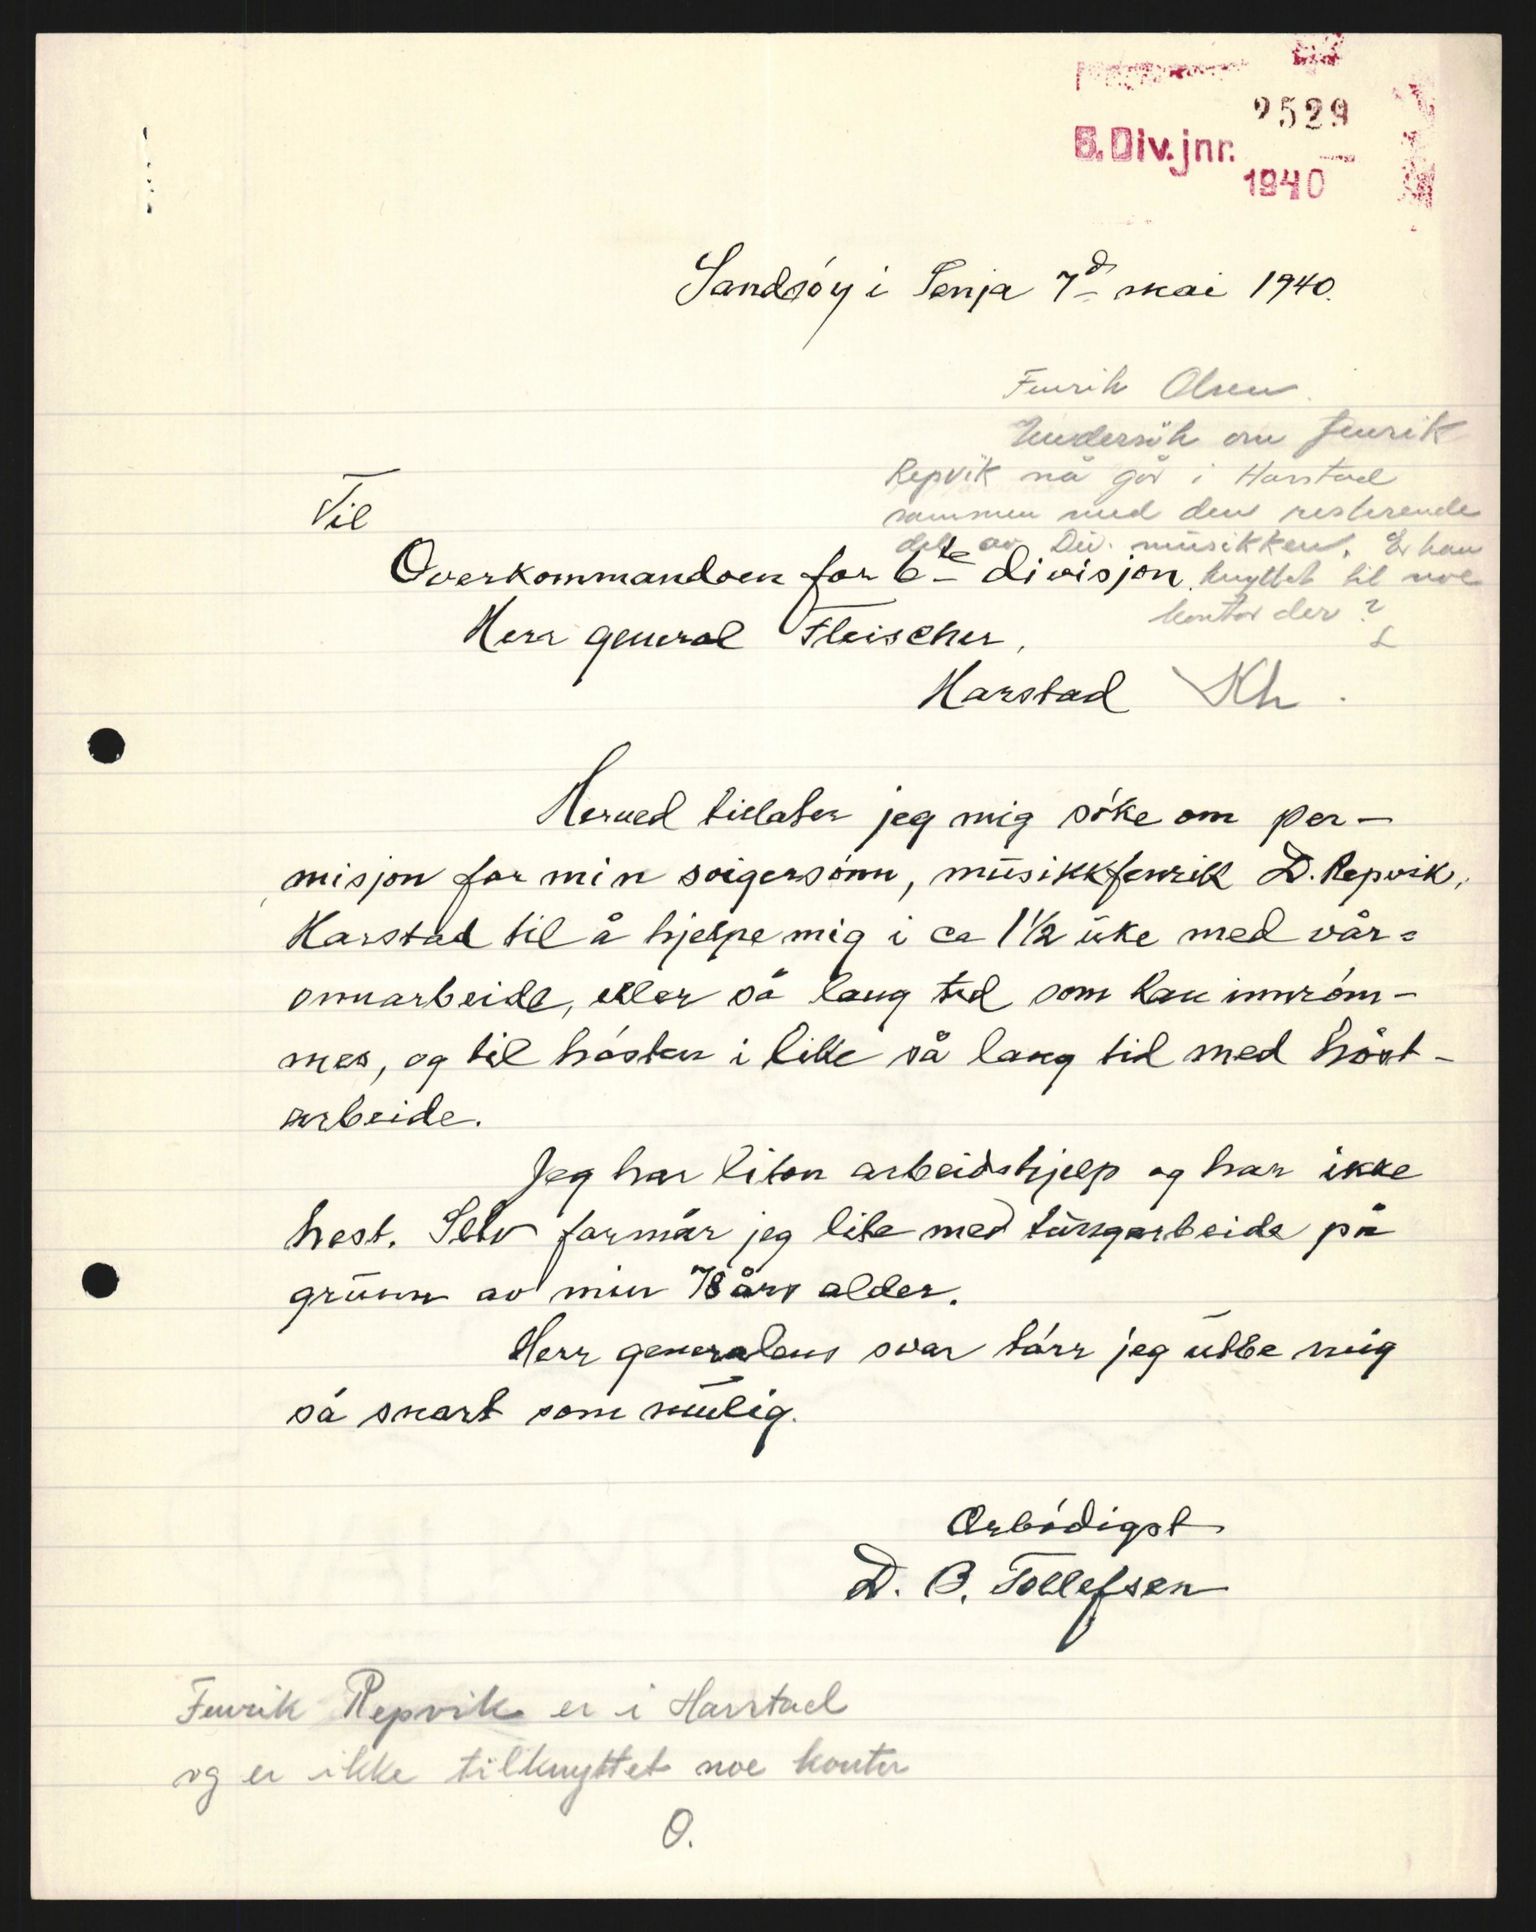 2529
6. Div. jnr.
1940
Sandsøy i Senja 7d mai 1940.
Fenrik Olsen.
Undersök om fenrik
Repvik nå går i Harstad
sammen med den resterende
del av Div. musikken. Er han
knyttet til noe
kontor der?
Til
Overkommandoen for 6te divisjon.
Herr general Fleischer,
Harstad
Kh
Herved tillater jeg mig søke om per-
misjon for min svigersønn, musikkfenrik D. Repvik,
Harstad til å hjelpe mig i ca 1½ uke med vår-
onnarbeide, eller så lang tid som kan innrøm-
mes, og til høsten i like så lang tid med høst-
arbeide.
Jeg har liten arbeidshjelp og har ikke
hest. Selv formår jeg lite med tungarbeide på
grunn av min 78 års alder.
Herr generalens svar tørr jeg utbe mig
så snart som mulig.
Ærbødigst
D. B. Tollefsen
Fenrik Repvik er i Harstad
og er ikke tilknyttet noe kontor
O.